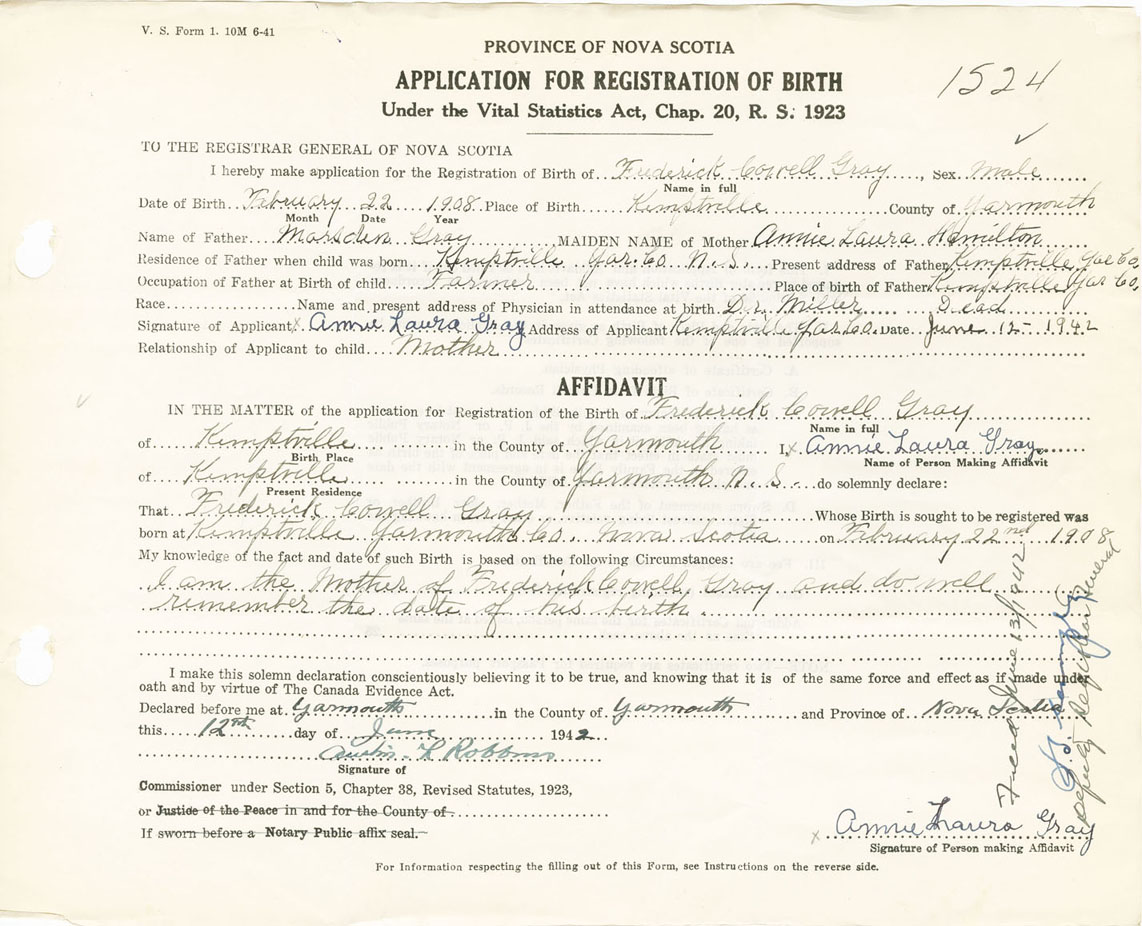 V. S. Form 1. 10M 6-41
PROVINCE OF NOVA SCOTIA
1524
APPLICATION FOR REGISTRATION OF BIRTH
Under the Vital Statistics Act, Chap. 20, R. S. 1923
TO THE REGISTRAR GENERAL OF NOVA SCOTIA
I hereby make application for the Registration of Birth of Frederick Cowell Gray, Sex Male
Name in full
Date of Birth February 22 1908 Place of Birth Kemptville County of Yarmouth
Month Date Year
Name of Father Marsden Gray MAIDEN NAME of Mother Annie Laura Hamilton
Residence of Father when child was born Kemptville Yar. Co. N. S. Present address of Father Kemptville Yar Co.
Occupation of Father at Birth of child Farmer Place of birth of Father Kemptville Yar Co.
Race Name and present address of Physician in attendance at birth Dr. Miller Dead
Signature of Applicant x Annie Laura Gray Address of Applicant Kemptville Yar Co. Date June 12 - 1942
Relationship of Applicant to child Mother
AFFIDAVIT
IN THE MATTER of the application for Registration of the Birth of Frederick Cowell Gray
Name in full
of Kemptville in the County of Yarmouth I, x Annie Laura Gray
Birth Place Name of Person Making Affidavit
of Kemptville in the County of Yarmouth N. S. do solemnly declare:
Present Residence
That Frederick Cowell Gray Whose Birth is sought to be registered was
born at Kemptville Yarmouth Co. Nova Scotia on February 22nd 1908
My knowledge of the fact and date of such Birth is based on the following Circumstances:
I am the Mother of Frederick Cowell Gray and do well
remember the date of his birth.
I make this solemn declaration conscientiously believing it to be true, and knowing that it is of the same force and effect as if made under
oath and by virtue of The Canada Evidence Act.
Declared before me at Yarmouth in the County of Yarmouth and Province of Nova Scotia
this 12th day of June 1942
Austin L Robbins
Signature of
Commissioner under Section 5, Chapter 38, Revised Statutes, 1923,
or Justice of the Peace in and for the County of
If sworn before a Notary Public affix seal.
x Annie Laura Gray
Signature of Person making Affidavit
For Information respecting the filling out of this Form, see Instructions on the reverse side.
Filed June 13/1942
Deputy Registrar General